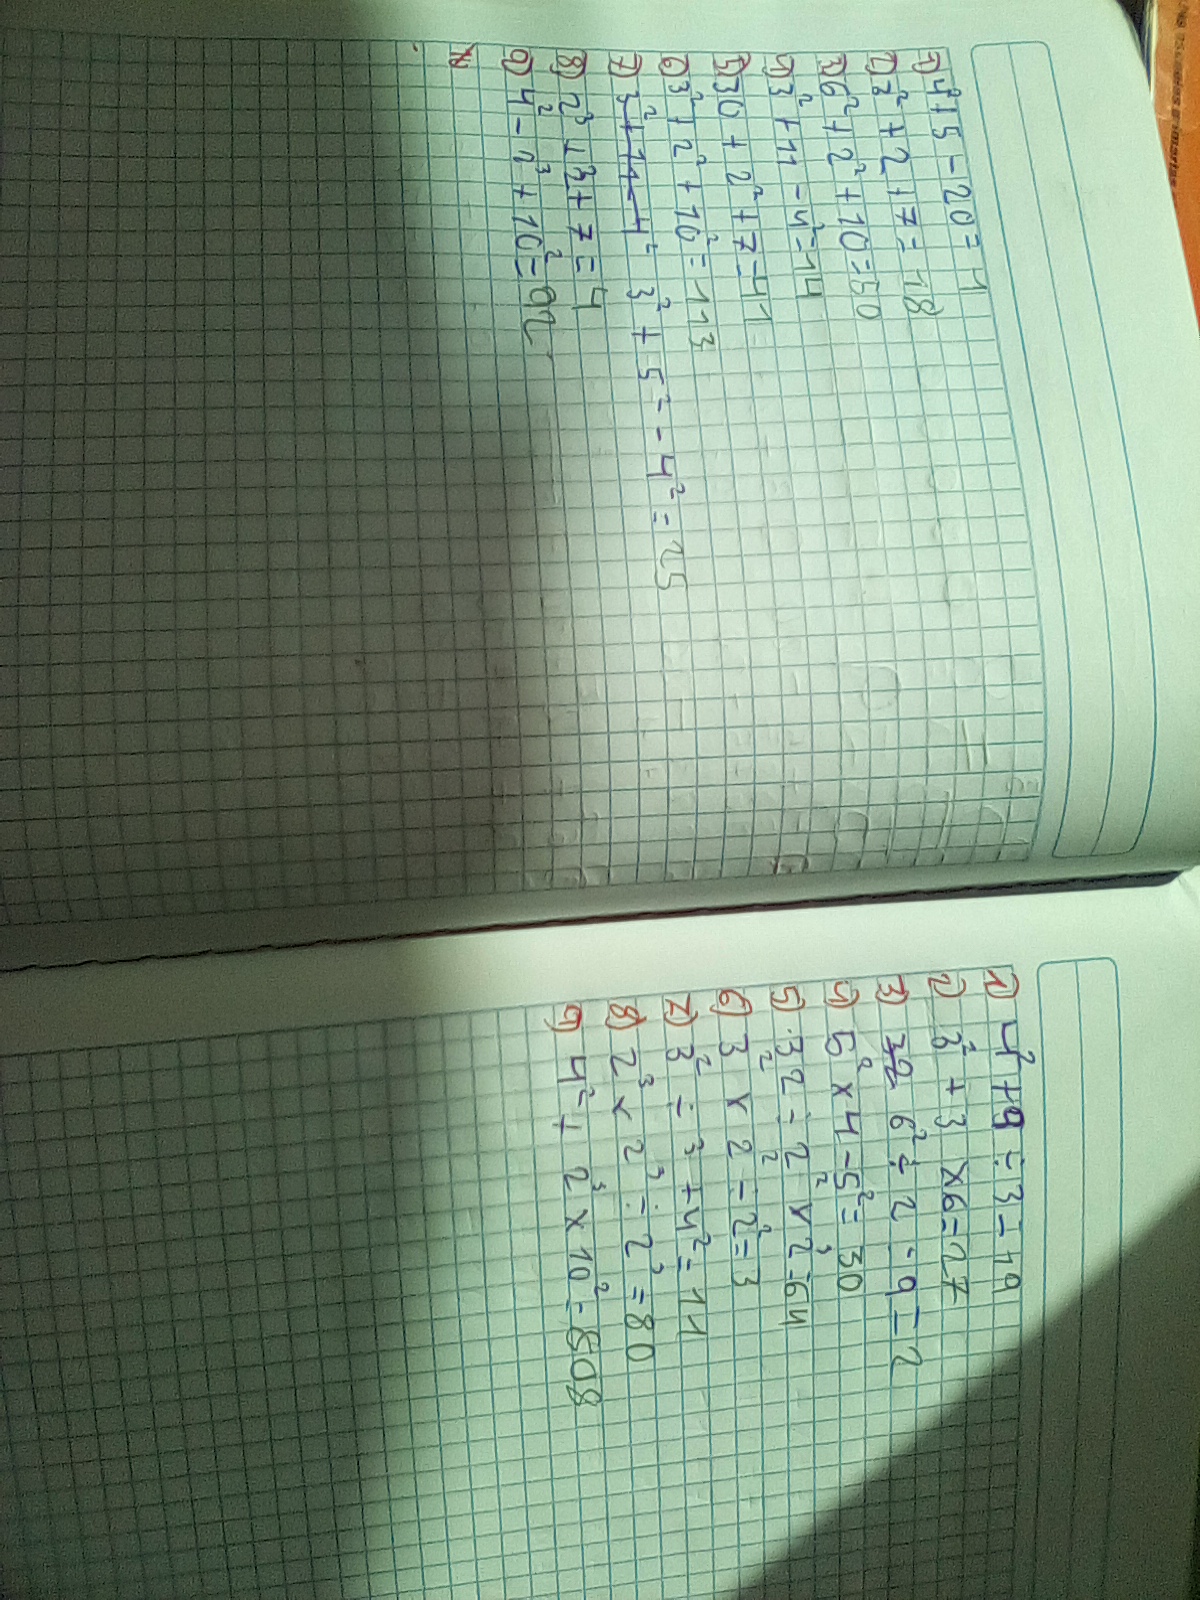 1) 4²+5-20=1
2) 3²+2+7=18
3) 6²+2²+10=50
4) 3²+11-4²=14
5) 30+2²+7=41
6) 3²+2²+10²=113
7) 3²+5²-4²=25
8) 2³+3+7=4
9) 4²-1³+10²=92
1) 4²+9÷3=19
2) 3²+3×6=27
3) 6²÷2-9=2
4) 5²×4-5²=30
5) 32÷2²×2³=64
6) 3²×2²-2²=3
7) 3²÷3+4²=11
8) 2³×2³÷2³=80
9) 4²+2³×10²=808